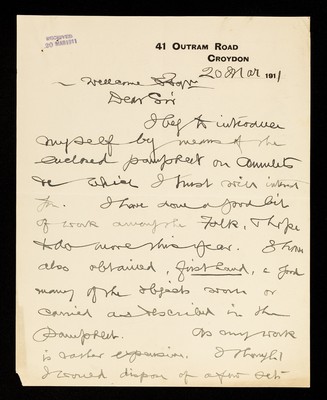 RECEIVED
30 MAR 1911
41 OUTRAM ROAD
CROYDON
20 Mar 1911
Wellcome
Dear Sir
I beg to introduce
myself by means of the
enclosed pamphlet on Amulets
&c which I trust will interest
you. I have done a good bit
of work among the Folk, & hope
to do more this year. I have
also obtained, first hand, a good
many of the objects worn or
carried and described in the
pamphlet. As my work
is rather expensive. I thought
I would dispose of a few sets